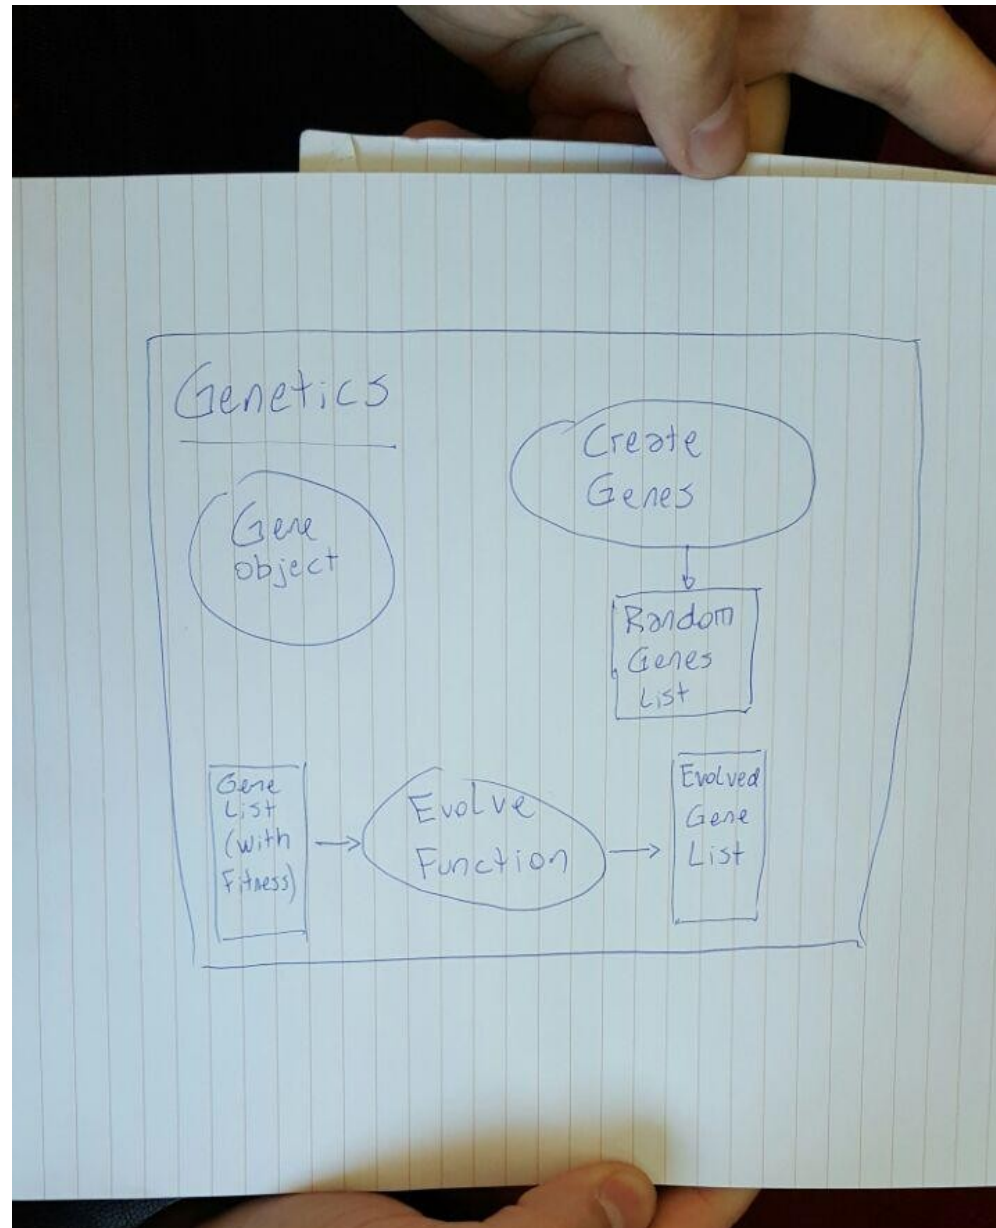 Genetics
Create
Genes
Gene
object
Random
Genes
List
Gene
List
(with
Fitness)
Evolve
Function
Evolved
Gene
List